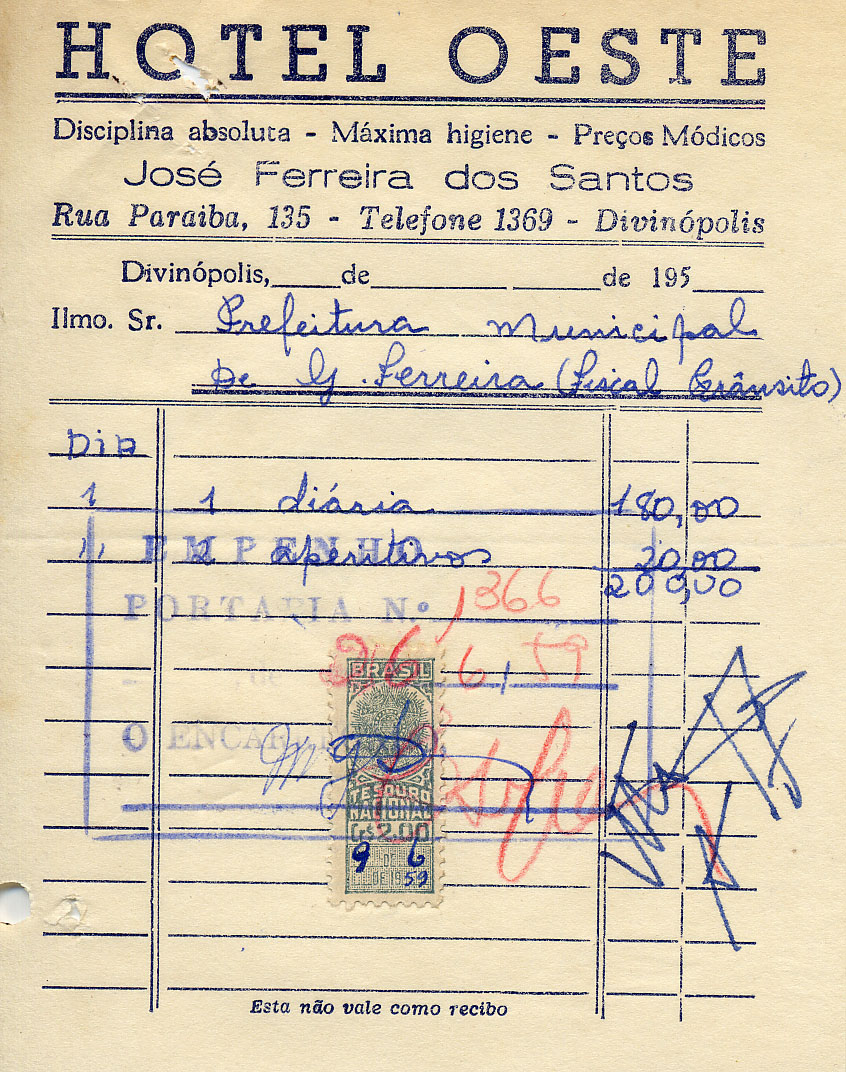 HOTEL OESTE
Disciplina absoluta - Máxima higiene - Preços Módicos
José Ferreira dos Santos
Rua Paraiba, 135 - Telefone 1369 - Divinópolis
Divinópolis,____de__________ ______de 195____
Ilmo. Sr. Prefeitura municipal
De G. Ferreira (Fiscal Trânsito)
DIA
1 1 diária 180,00
" 2 aperitivos 20,00
200,00
EMPENHO
PORTARIA N.º 1366
26, 6, 59
de
O ENCAR
BRASIL
TESOURO
NACIONAL
Cr$ 2,00
9 DE 6
DE 1959
Esta não vale como recibo